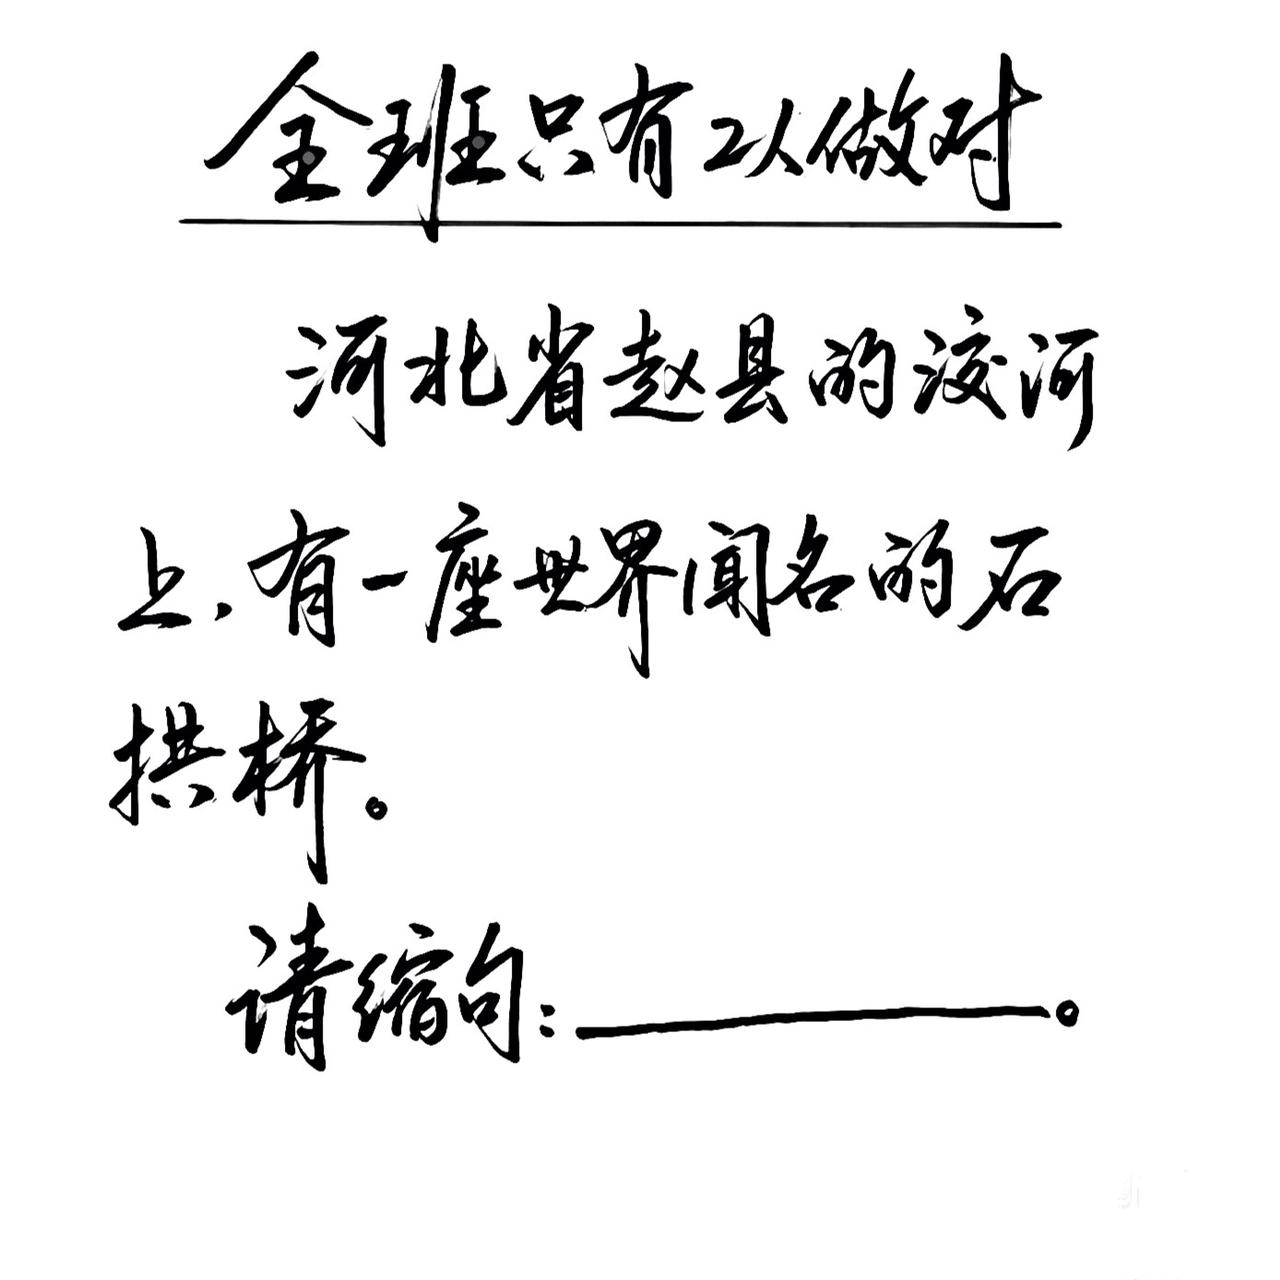 全班只有2人做对
河北省赵县的洨河
上，有一座世界闻名的石
拱桥。
请缩句：______。